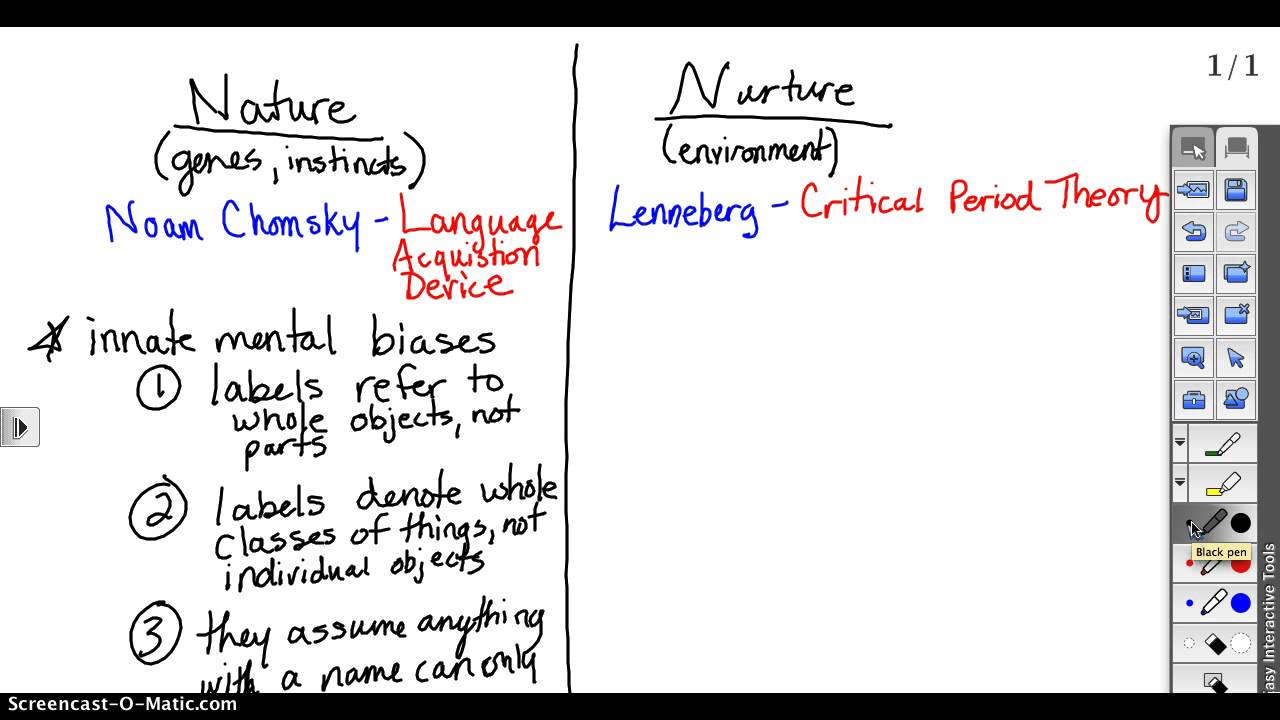 Nature
(genes, instincts)
Noam Chomsky - Language
Acquistion
Device
innate mental biases
1 labels refer to
whole objects, not
parts
2 labels denote whole
classes of things, not
individual objects
3 they assume anything
with a name can only
Nurture
(environment)
Lenneberg - Critical Period Theory
1/1
Black pen
easy Interactive Tools
Screencast-O-Matic.com